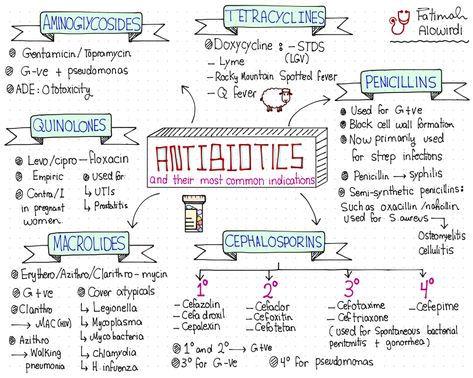 AMINOGLYCOSIDES
Gentamicin/Topramycin
G-ve + pseudomonas
ADE: Ototoxicity
TETRACYCLINES
Doxycycline: - STDS
- Lyme (LGV)
- Rocky Mountain Spotted fever
- Q fever
Fatimah
Alowirdi
PENICILLINS
Used for G+ve
Block cell wall formation
Now primarily used
for strep infections
Penicillin → syphilis
Semi-synthetic penicillins:
Such as oxacillin/nafcillin
used for S.aureus
Osteomyelitis
cellulitis
QUINOLONES
Levo/cipro - floxacin
Empiric
used for
Contra/I
in pregnant
women.
UTIs
Prostatitis
ANTIBIOTICS
and their most common indications
MACROLIDES
Erythero/Azithro/Clarithro - mycin
G+ve
Clarithro
→ MAC (HIV)
Azithro
→ Walking
pneumonia
Cover atypicals
Legionella
Mycoplasma
Mycobacteria
chlamydia
H. infuenza
CEPHALOSPORINS
1°
- Cefazolin
- Cefa droxil
- Cepalexin
2°
- Cefaclor
- Cefoxitin
- Cefotetan
3°
- Cefotaxime
- Ceftriaxone
(used for Spontaneous bacterial
peritonitis + gonorrhea)
4°
- Cefepime
1° and 2° → G+ve
3° for G-ve
4° for pseudomonas